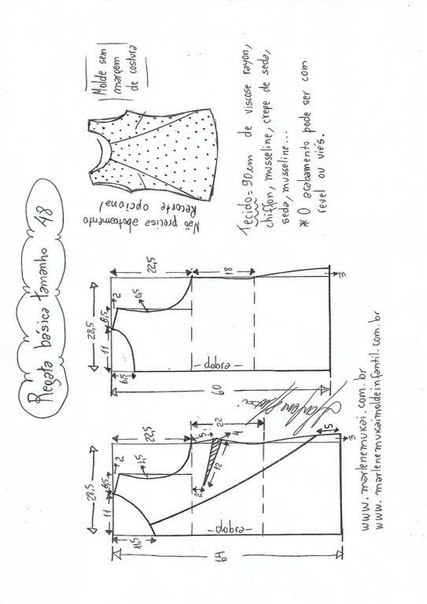 Regata básica tamanho 48
Molde sem
margem
de costura
Não precisa abotoamento
Recorte opcional
Tecido = 90cm de viscose rayon,
chiffon, musseline, crepe de seda,
seda, musseline...
* O acabamento pode ser com
revel ou viés.
28,5
11
6,5
2
22,5
0,5
18
6,5
-dobra-
60
3
28,5
11
6,5
2
22,5
1,5
22
5
4
12
2
-dobra-
5
3
64
www.marlenemukai.com.br
www.marlenemukaimoldeinfantil.com.br